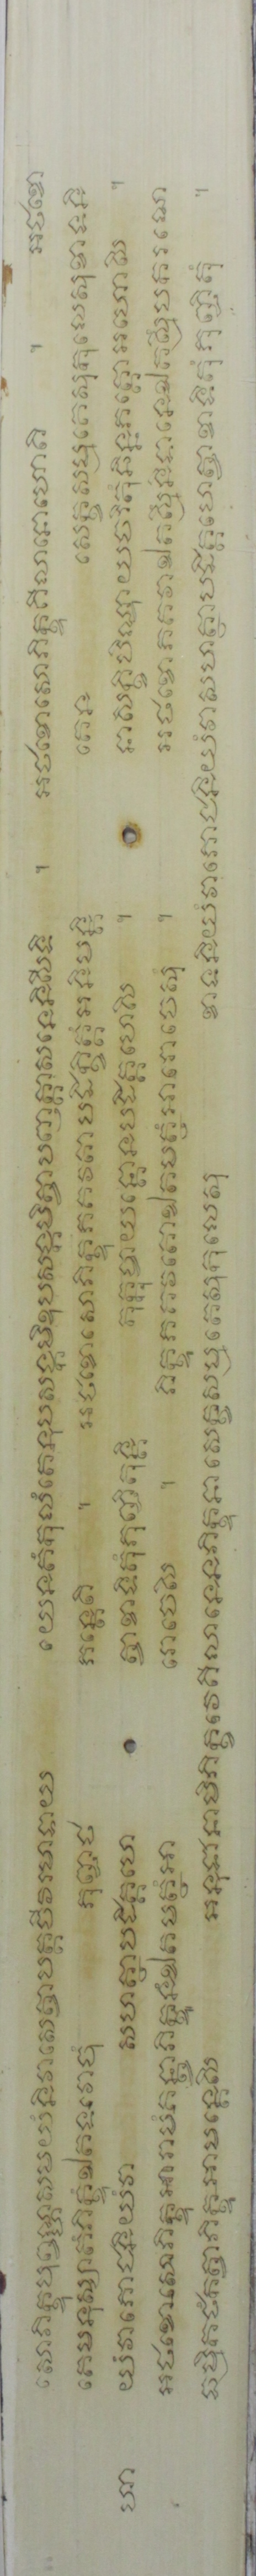 សោភិក្ខុបុព្វណ្ហសមយំនិវាសេត្វាបត្តចីវរមាទាយ យេនតំកុលំតេនុបសង្កមិឧបសង្កមិត្វាបញ្ញត្តាសនេនិសីទិ ។ អថខោសោភិក្ខុគិលានោហោតិ ។ អថខោ
តេមនុស្សាតំភិក្ខុំឯតទវោចុំ ភុញ្ជថ ភន្តេតិ ។ អថខោសោភិក្ខុភគវតាបដិក្ខិត្តំអនិមន្តិ តេន សេក្ខសម្មតេសុកុលេសុខាទនិ
ហា យំវាភោជនិយំវា សហត្ថាបដិគ្គហេ ត្វាខាទិតុំភុញ្ជិតុន្តិ កុក្កុច្ចាយន្តោនបដិគ្គហេសិ ។ នាសក្ខិបិណ្ឌាយចរិតុំឆិន្នភត្តោអហោសិ ។
អថខោសោភិក្ខុអារាមំគន្ត្វាភិក្ខូនំឯតមត្ថំអា រោចេសិ ។ ភិក្ខូភគវតោឯតមត្ថំអារោចេសុំ ។ អថខោភគវាឯតស្មឹនិទានេឯតស្មឹបករណេ
ធម្មឹកថំកត្វាភិក្ខូអាមន្តេសិ អនុជានាមិភិក្ខវេគិលានេនភិក្ខុនាសេក្ខសម្មតេសុកុលេសុ ខាទនិយំវាភោជនិយំវាសហត្ថាបដិគ្គហេត្វាខាទិតុំភុញ្ជិតុំ ។